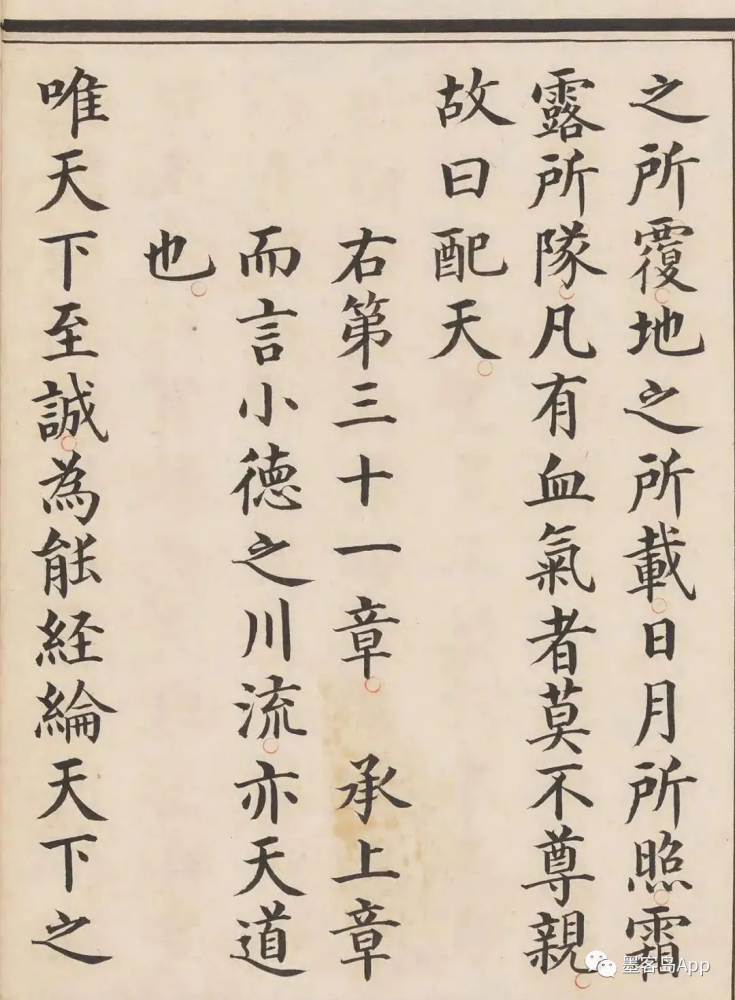 之所覆地之所載日月所照霜
露所隊凡有血氣者莫不尊親
故曰配天
右第三十一章 承上章
而言小德之川流亦天道
也
唯天下至誠為能經綸天下之
墨客岛App